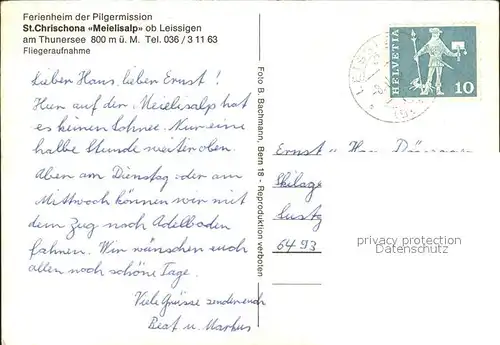 Ferienheim der Pilgermission
St.Chrischona «Meielisalp» ob Leissigen
am Thunersee 800 m ü. M. Tel. 036 / 3 11 63
Fliegeraufnahme
Lieber Hans, lieber Ernst!
Hier auf der Meielisalp hat
es keinen Schnee. Nur eine
halbe Stunde weiter oben.
Aber am Dienstag oder am
Mittwoch können wir mit
dem Zug nach Adelboden
fahren. Wir wünschen euch
allen noch schöne Tage.
Viele Grüsse senden euch
Beat u. Markus
Foto B. Bachmann, Bern 18 - Reproduktion verboten
HELVETIA
10
Ernst u. Hans
Skilage
Lustg
6493
privacy protection
Datenschutz